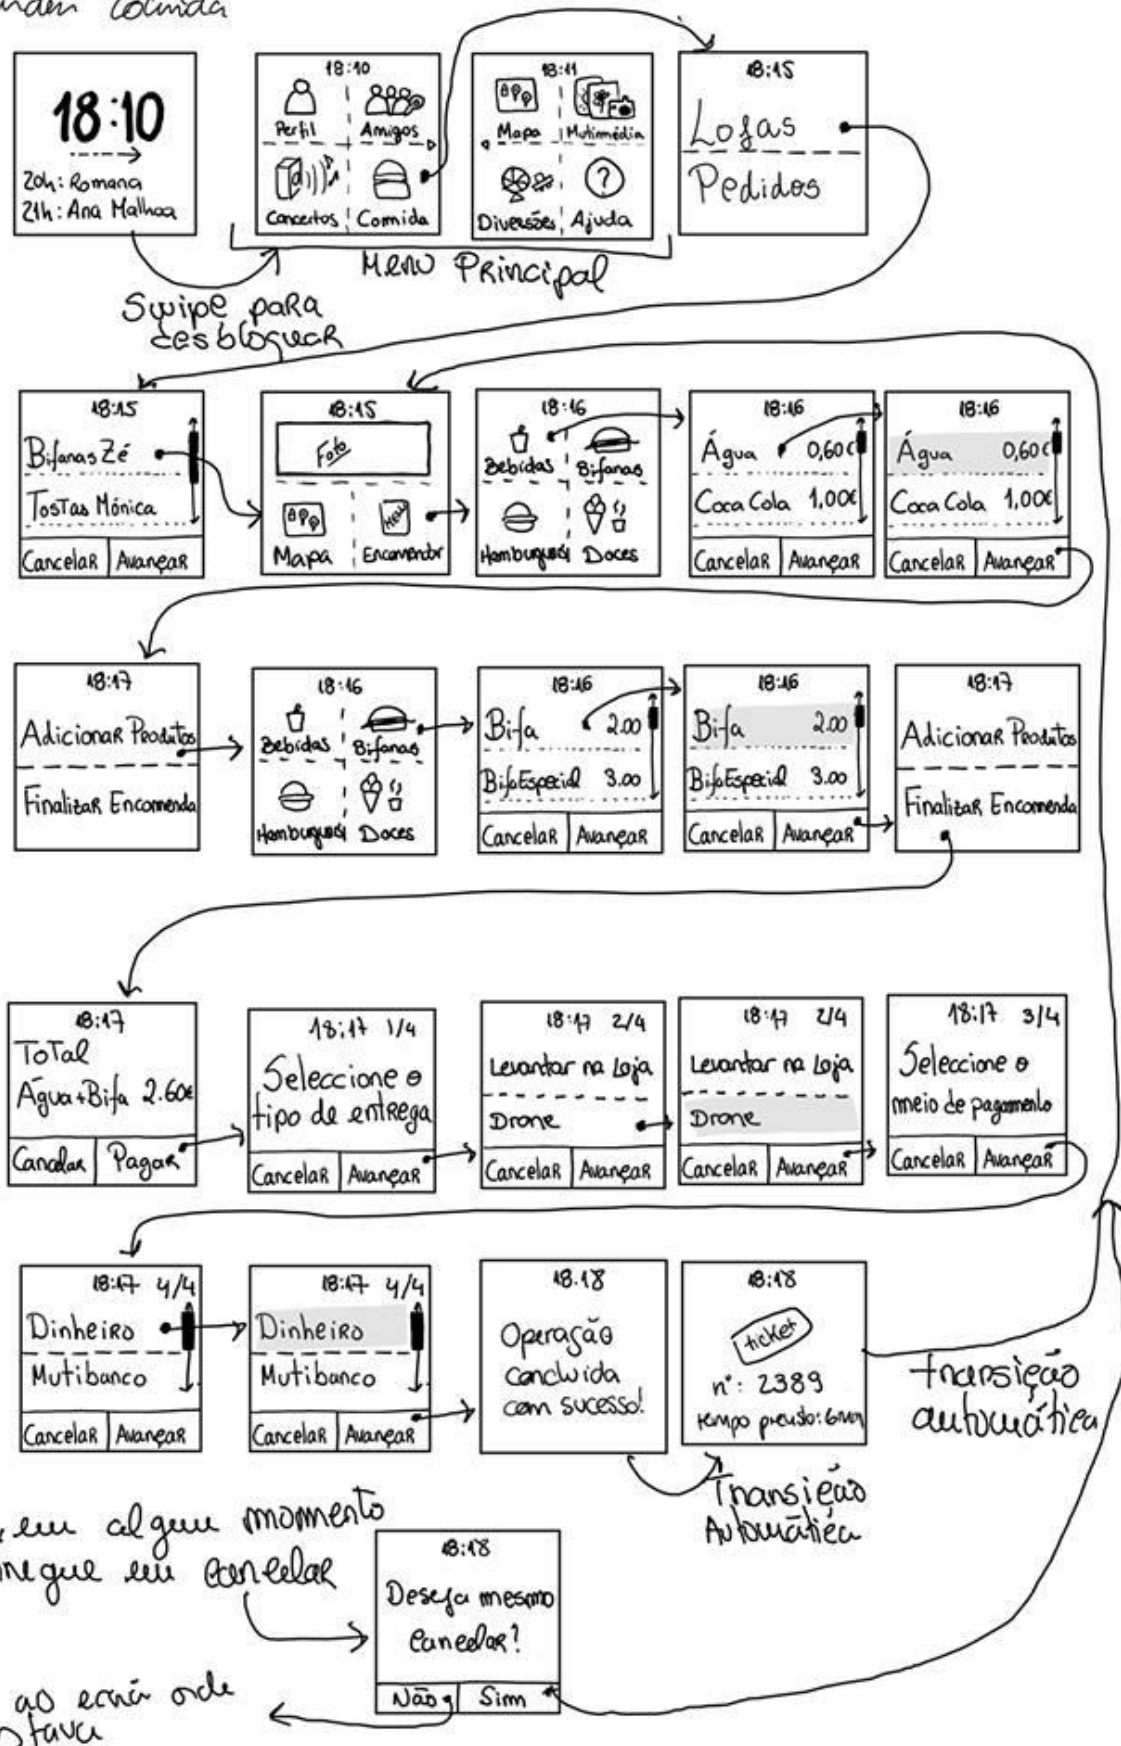 Comida
18:10
20h: Romana
21h: Ana Malhoa
18:10
Perfil Amigos
Concertos Comida
18:11
Mapa Mutimédia
Diversões Ajuda
18:15
Lojas
Pedidos
Menu Principal
Swipe para
desbloquear
18:15
Bifanas Zé
Tostas Mónica
Cancelar Avançar
18:15
Foto
Menu
Mapa Encomendar
18:16
Bebidas Bifanas
Hamburgues Doces
18:16
Água 0,60€
Coca Cola 1,00€
Cancelar Avançar
18:16
Água 0,60€
Coca Cola 1,00€
Cancelar Avançar
18:17
Adicionar Produtos
Finalizar Encomenda
18:16
Bebidas Bifanas
Hamburgues Doces
18:16
Bifa 2.00
Bifa Especial 3.00
Cancelar Avançar
18:16
Bifa 2.00
Bifa Especial 3.00
Cancelar Avançar
18:17
Adicionar Produtos
Finalizar Encomenda
18:17
Total
Água+Bifa 2.60€
Cancelar Pagar
18:17 1/4
Seleccione o
tipo de entrega
Cancelar Avançar
18:17 2/4
Levantar na Loja
Drone
Cancelar Avançar
18:17 2/4
Levantar na Loja
Drone
Cancelar Avançar
18:17 3/4
Seleccione o
meio de pagamento
Cancelar Avançar
18:17 4/4
Dinheiro
Mutibanco
Cancelar Avançar
18:17 4/4
Dinheiro
Mutibanco
Cancelar Avançar
18:18
Operação
concluida
com sucesso!
18:18
ticket
nº: 2389
tempo previsto: 6min
transição
automática
Transição
Automática
em algum momento
carregue em cancelar
18:18
Deseja mesmo
Cancelar?
Não Sim
ao ecrã onde
estava